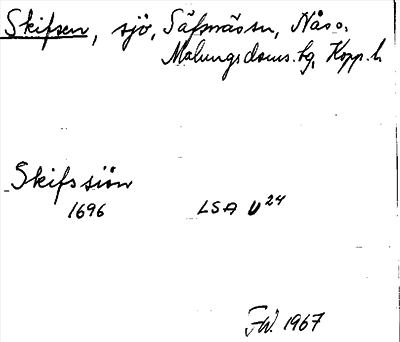 Skifsen, sjö, Säfsnäs sn, Nås o.
Malungs doms. tg, Kopp. l.
Skifssiön
1696 LSA U 24
F.W. 1967